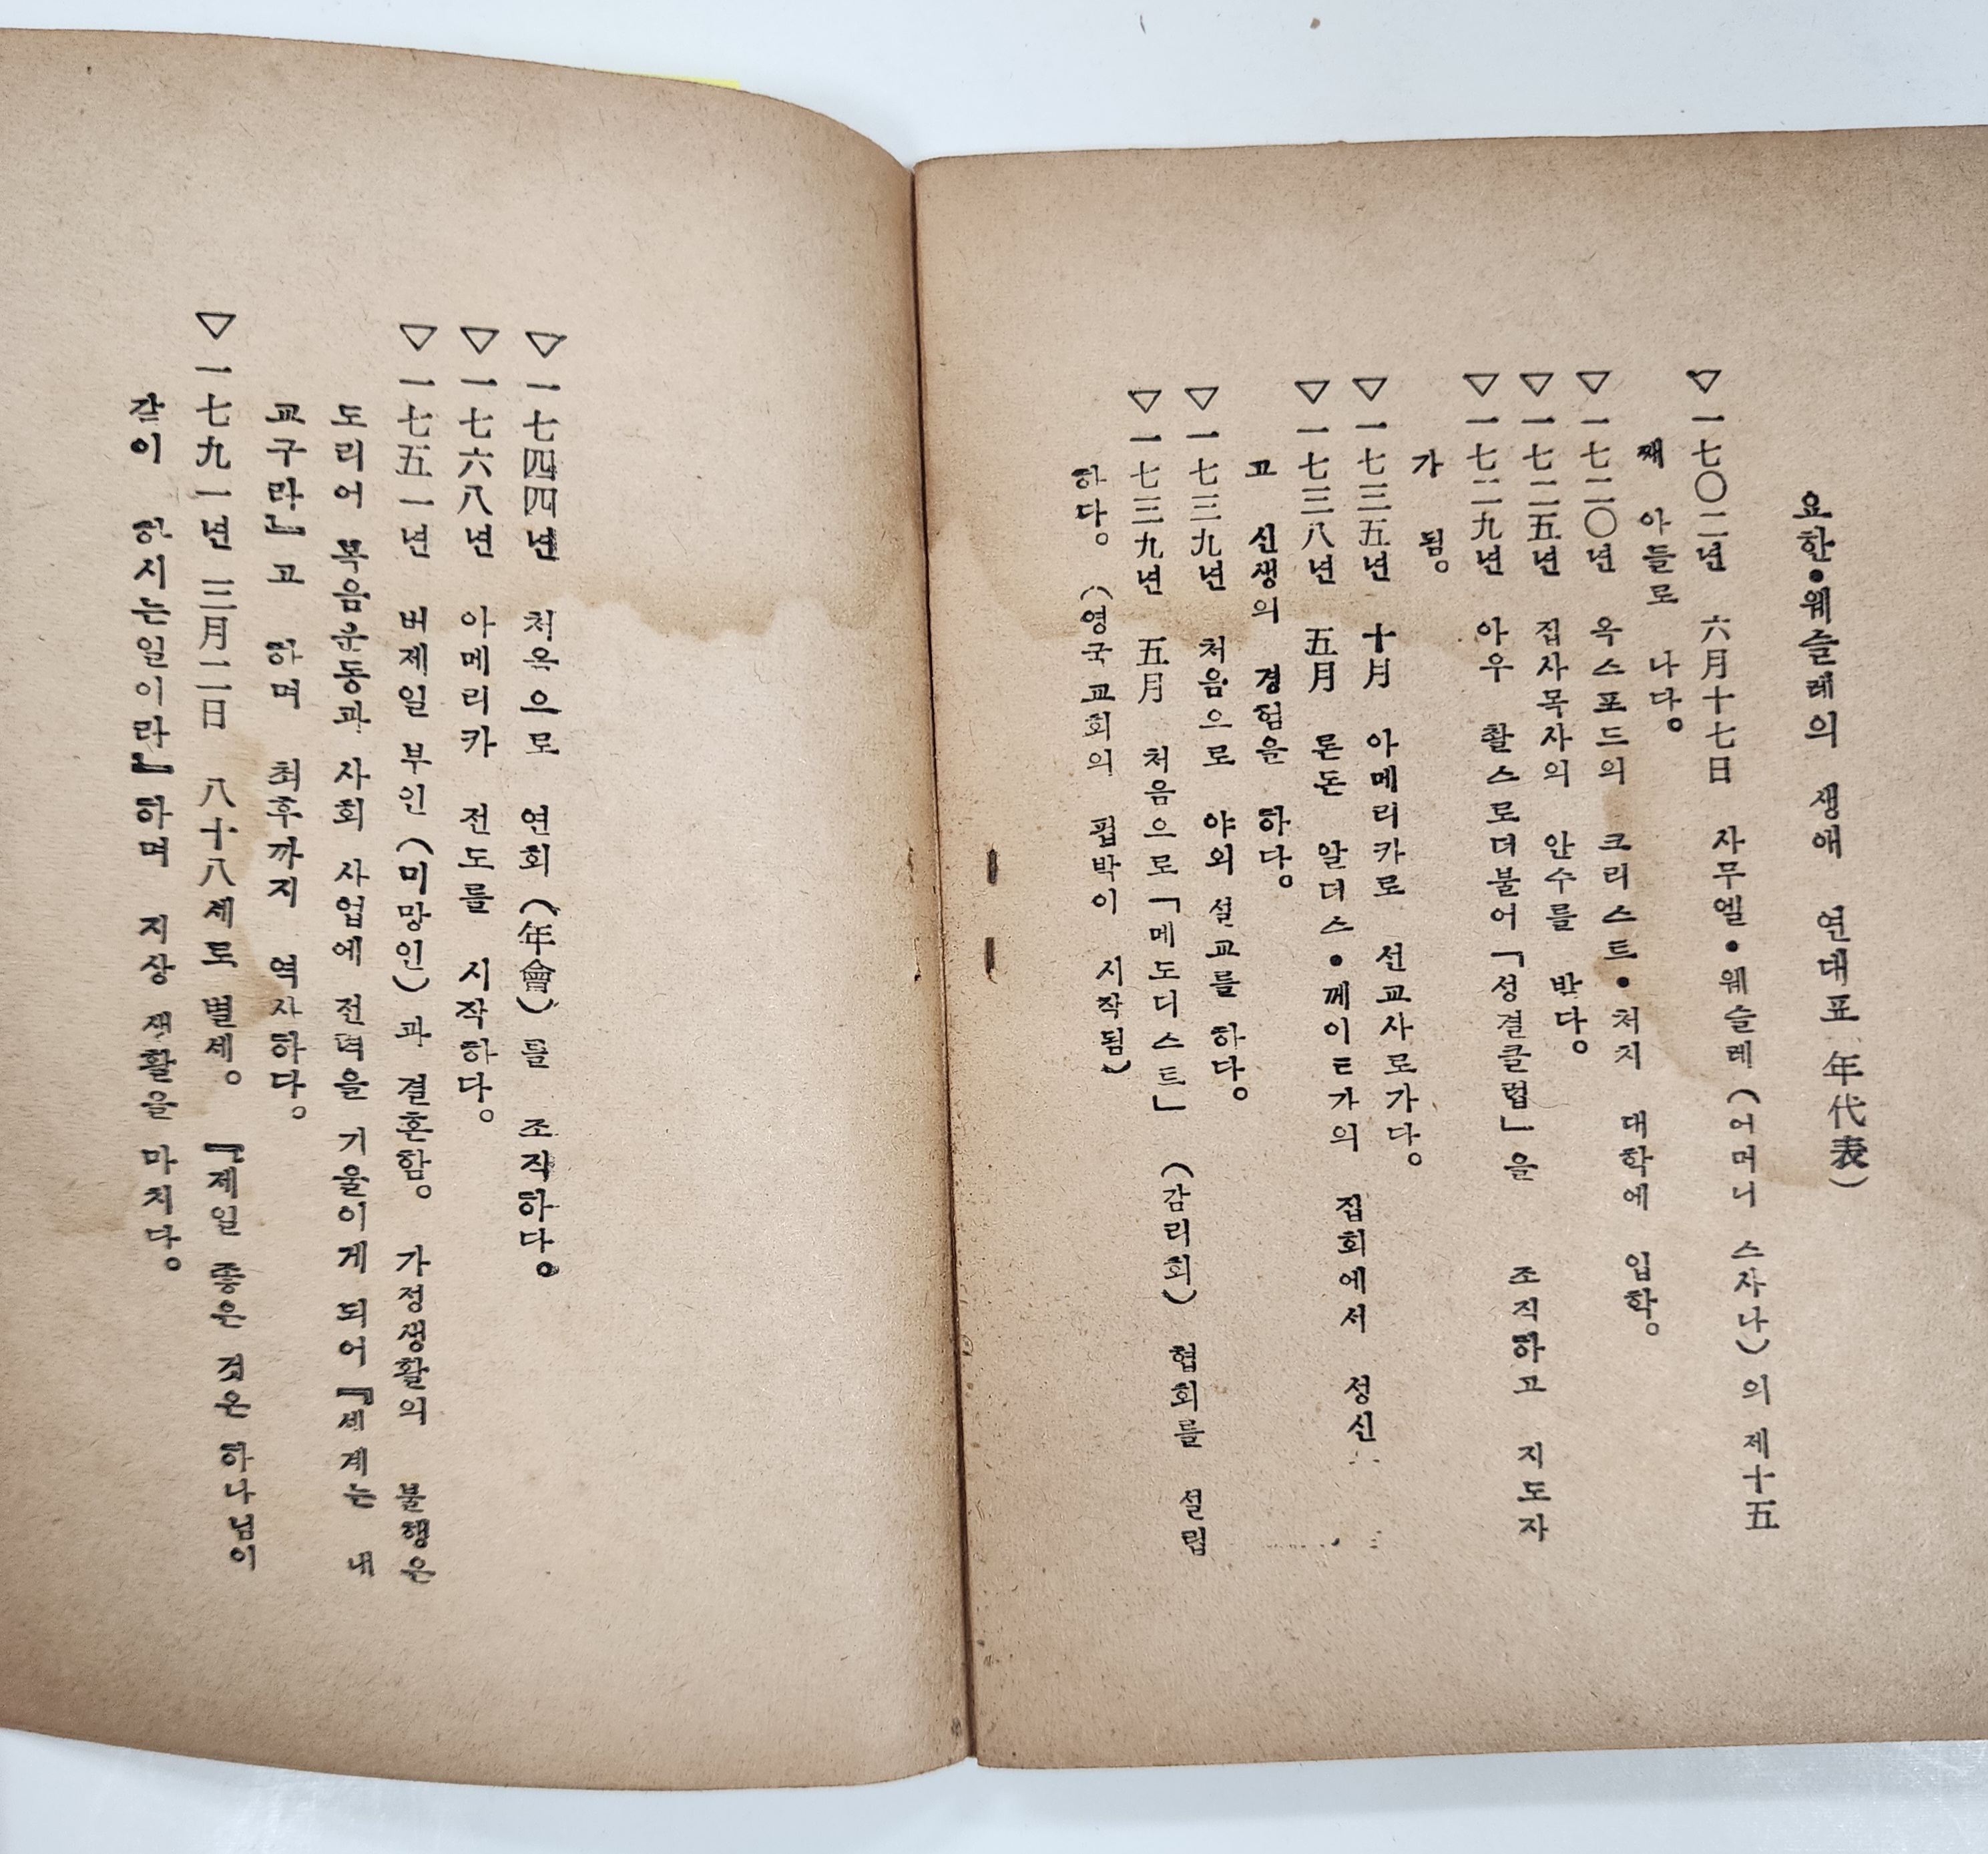 요한•웨슬레의 생애 연대표 年代表)
▽一七〇二년 六月十七日 사무엘•웨슬레(어머니 스사나)의 제十五
째 아들로 나다。
▽一七二〇년 옥스포드의 크리스트•처치 대학에 입학。
▽一七二五년 집사목사의 안수를 받다。
▽一七二九년 아우 촬스로더불어「성결클럽」을 조직하고 지도자
가 됨。
▽一七三五년 十月 아메리카로 선교사로가다。
▽一七三八년 五月 론돈 알더스•께이트가의 집회에서 성신
고 신생의 경험을 하다。
▽一七三九년 처음으로 야외 설교를 하다。
▽一七三九년 五月 처음으로「메도디스트」(감리회) 협회를 설립
하다。(영국교회의 핍박이 시작됨)
▽一七四四년 처음으로 연회(年會)를 조직하다。
▽一七六八년 아메리카 전도를 시작하다。
▽一七五一년 버제일부인(미망인)과 결혼함。 가정생활의 불행은
도리어 복음운동과 사회 사업에 전력을 기울이게 되어『세계는 내
교구라』고 하며 최후까지 역사하다。
▽一七九一년 三月二日 八十八세로 별세。『제일 좋은 것은 하나님이
같이 하시는일이라』하며 지상 생활을 마치다。